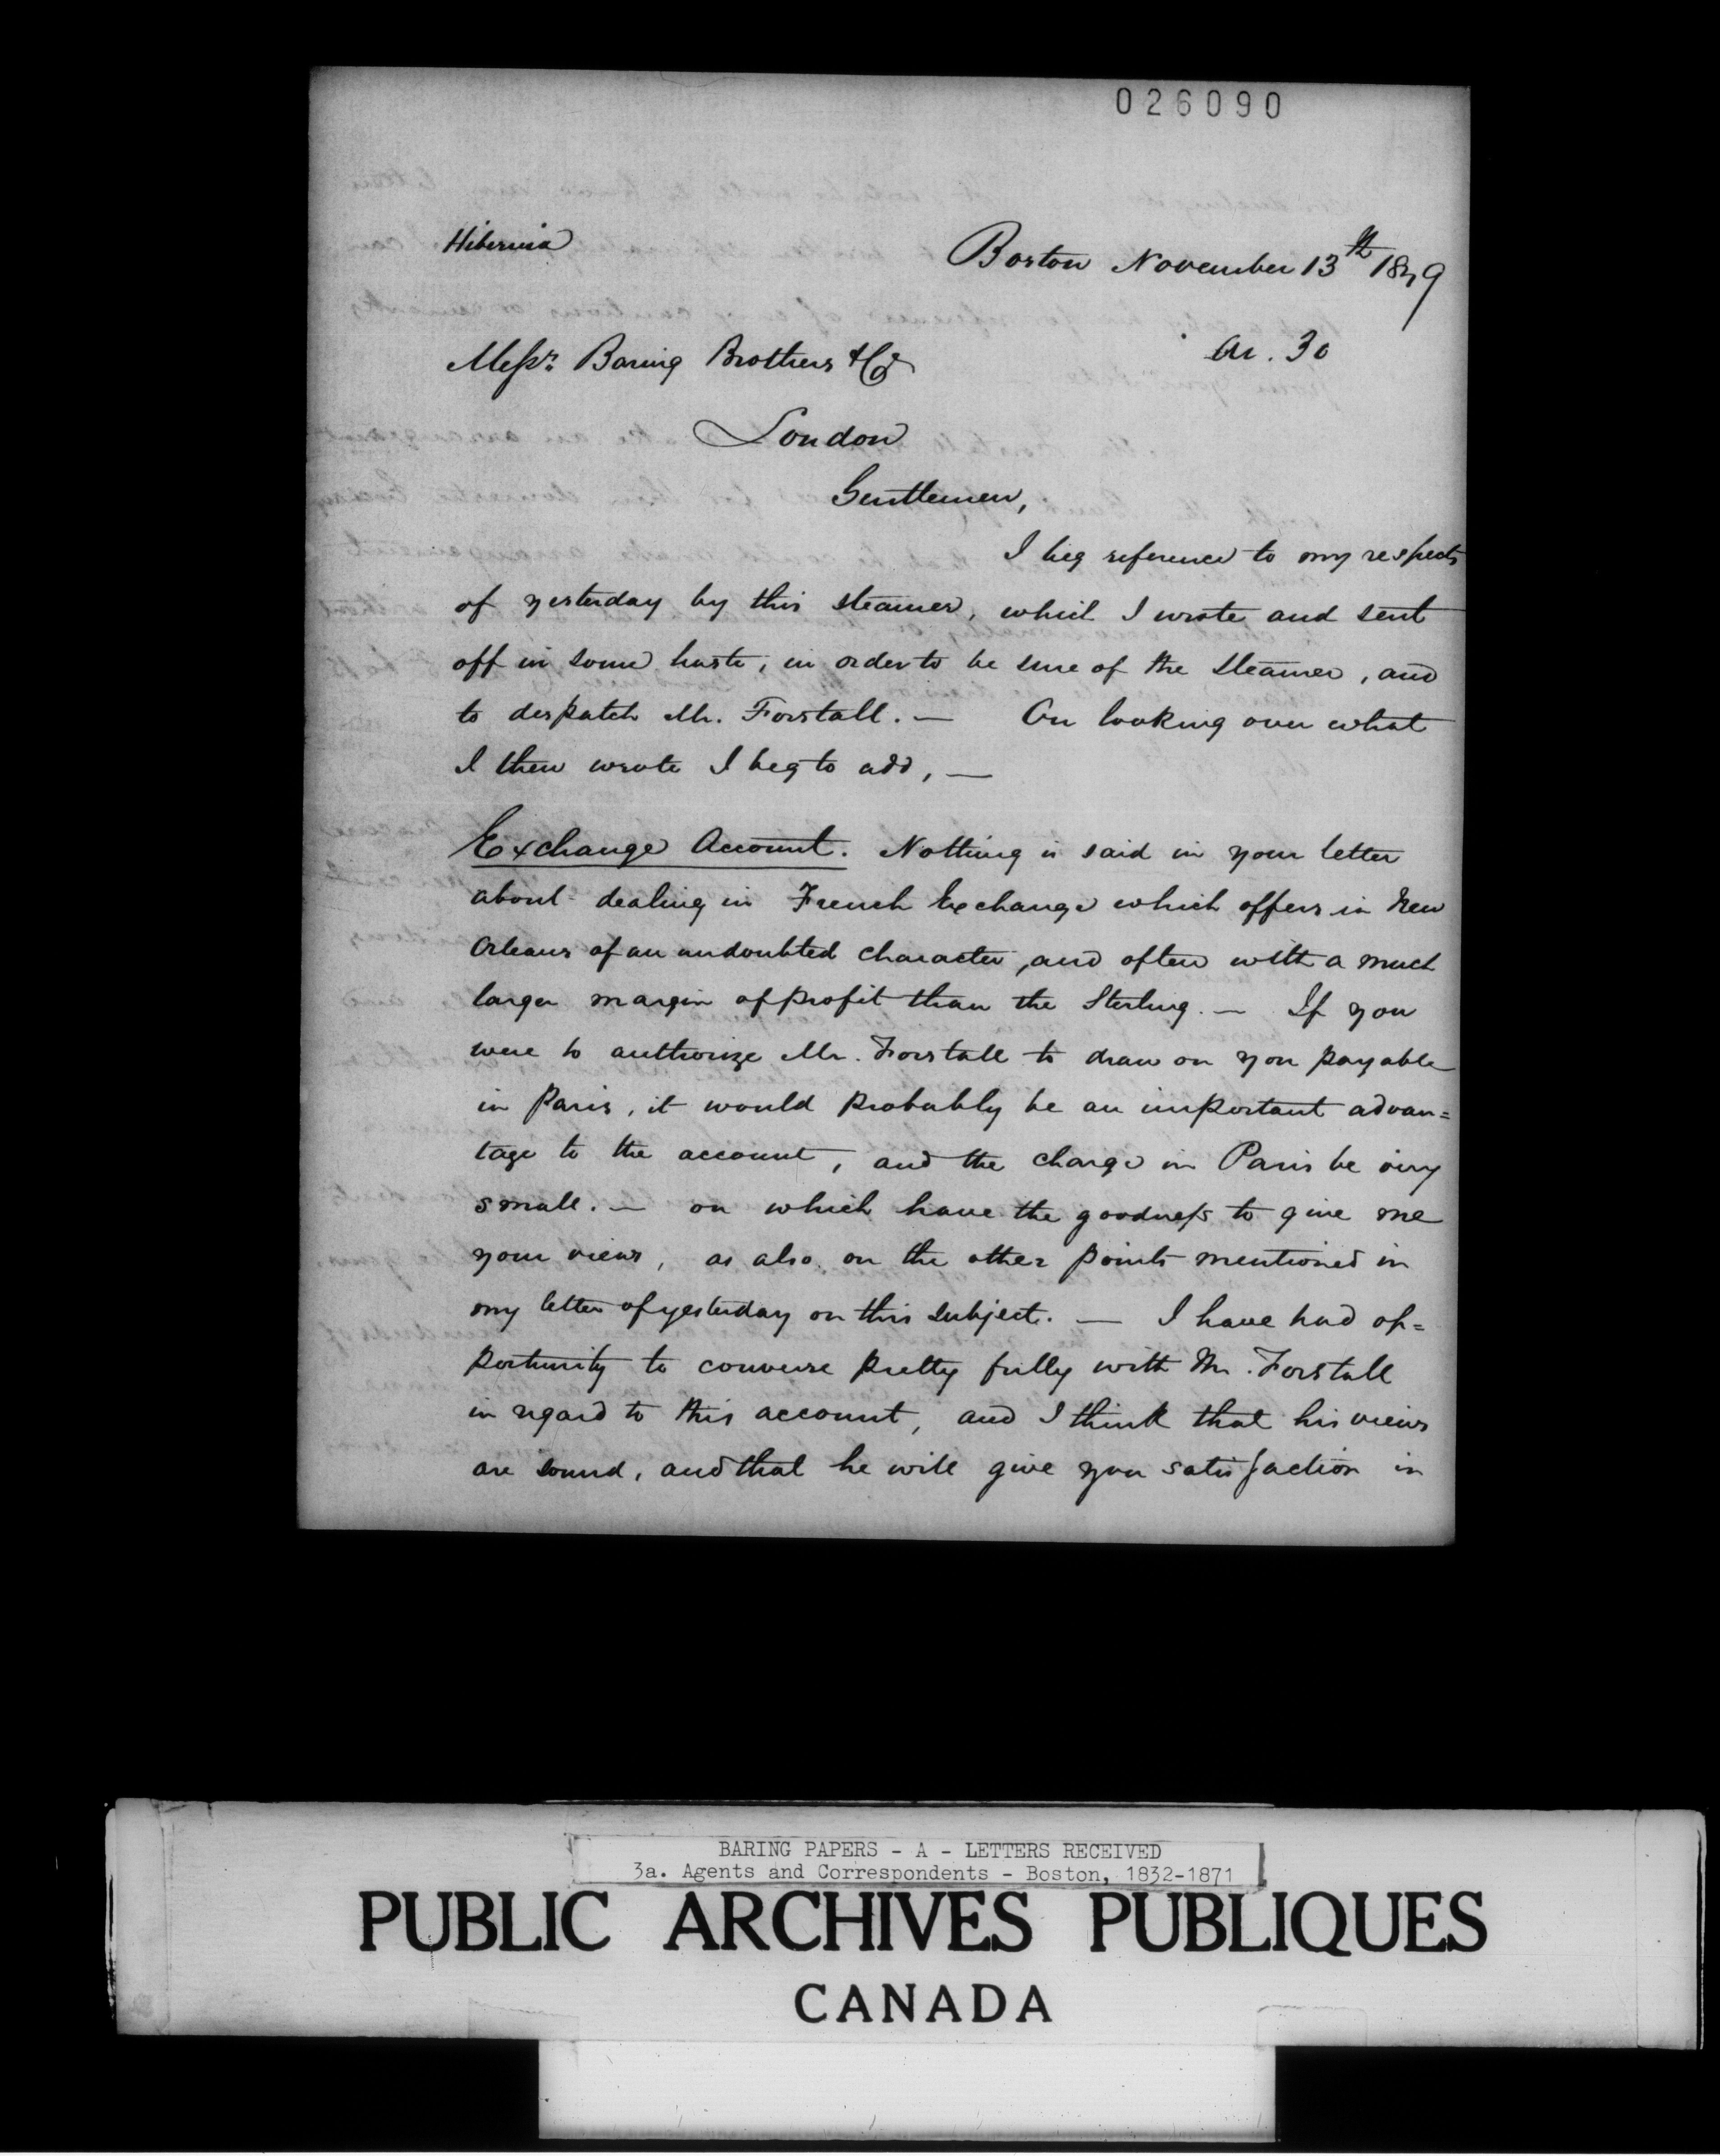 026090
Hibernia
Boston November 13th 1849
Messrs Baring Brothers & Co
An. 30
London
Gentlemen,
I beg reference to my respects
of yesterday by this steamer, which I wrote and sent
off in some haste, in order to be sure of the steamer, and
to despatch Mr. Forstall. — On looking over what
I then wrote I beg to add, —
Exchange Account. Nothing is said in your letter
about dealing in French Exchange which offers in New
Orleans of an undoubted character, and often with a much
larger margin of profit than the Sterling. — If you
were to authorize Mr. Forstall to draw on you payable
in Paris, it would probably be an important advan=
tage to the account, and the charge in Paris be very
small. — on which have the goodness to give me
your views, as also on the other points mentioned in
my letter of yesterday on this subject. — I have had op=
portunity to converse pretty fully with Mr. Forstall
in regard to this account, and I think that his views
are sound, and that he will give you satisfaction in
BARING PAPERS - A - LETTERS RECEIVED
3a. Agents and Correspondents - Boston, 1832-1871
PUBLIC ARCHIVES PUBLIQUES
CANADA